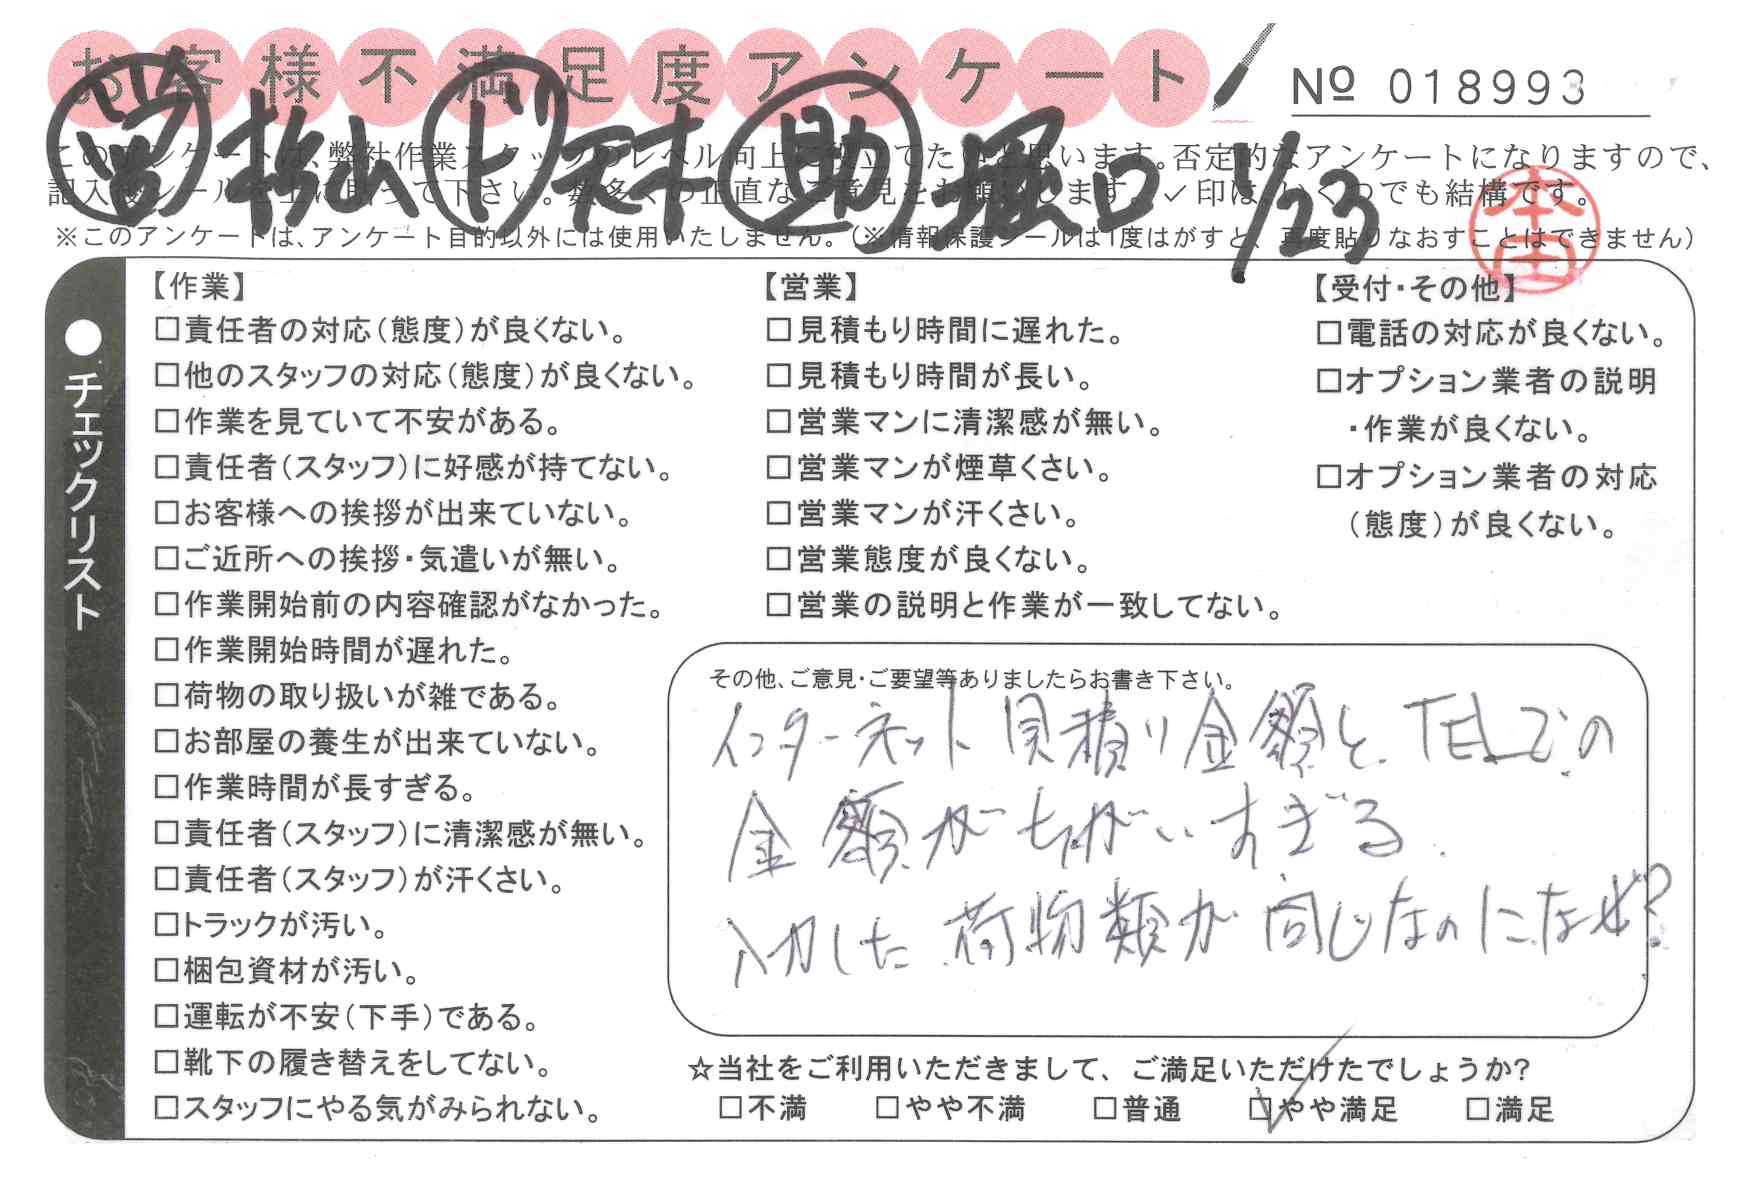 お客様不満足度アンケート
№ 018993
営 杉山 ド 天本 助 堀口 1/23
このアンケートは、弊社作業スタッフのレベル向上に役立てたいと思います。否定的なアンケートになりますので、
記入後シールを上に貼って下さい。数多くの正直なご意見をお願いします。✓印は、いくつでも結構です。
※このアンケートは、アンケート目的以外には使用いたしません。(※情報保護シールは1度はがすと、再度貼りなおすことはできません)
本田
●チェックリスト
【作業】
□責任者の対応(態度)が良くない。
□他のスタッフの対応(態度)が良くない。
□作業を見ていて不安がある。
□責任者(スタッフ)に好感が持てない。
□お客様への挨拶が出来ていない。
□ご近所への挨拶・気遣いが無い。
□作業開始前の内容確認がなかった。
□作業開始時間が遅れた。
□荷物の取り扱いが雑である。
□お部屋の養生が出来ていない。
□作業時間が長すぎる。
□責任者(スタッフ)に清潔感が無い。
□責任者(スタッフ)が汗くさい。
□トラックが汚い。
□梱包資材が汚い。
□運転が不安(下手)である。
□靴下の履き替えをしてない。
□スタッフにやる気がみられない。
【営業】
□見積もり時間に遅れた。
□見積もり時間が長い。
□営業マンに清潔感が無い。
□営業マンが煙草くさい。
□営業マンが汗くさい。
□営業態度が良くない。
□営業の説明と作業が一致してない。
【受付・その他】
□電話の対応が良くない。
□オプション業者の説明
・作業が良くない。
□オプション業者の対応
(態度)が良くない。
その他、ご意見・ご要望等ありましたらお書き下さい。
インターネット見積り金額と、TELでの
金額がちがいすぎる.
入力した荷物類が同じなのになぜ?
☆当社をご利用いただきまして、ご満足いただけたでしょうか?
□不満 □やや不満 □普通 ☑やや満足 □満足